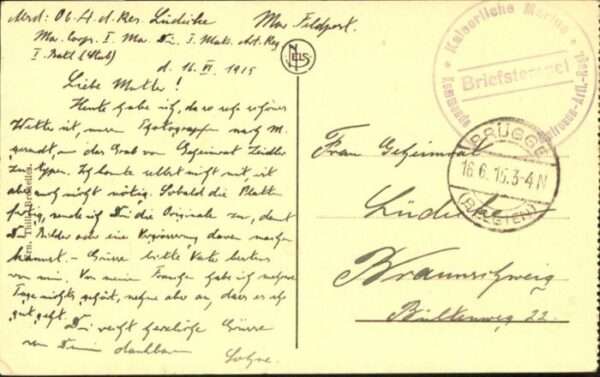 Absd: Ob. A. d. Res. Lüdicke Mar. Feldpost.
Mar. Corps. I. Ma. Div. I. Matr. Art. Reg
I. Batl (Stab)
d. 16. VI. 1915
Liebe Mutter!
Heute habe ich, da so sehr schönes
Wetter ist, einen Photographen nach M.
gesandt, um das Grab von Geheimrat Zeidler
zu typen. Ich konnte selbst nicht mit, ist
aber auch nicht nötig. Sobald die Platten
fertig, sende ich Dir die Originale zu, damit
Du Bilder oder eine Vergrösserung davon machen
kannst. – Grüsse bitte Vater bestens
von mir. Von mein habe ich mehrere
Tage nichts gehört, nehme aber an, dass es ihr
gut geht.
Dir recht herzliche Grüsse
von Deinem dankbaren Sohne.
NELS
Ern. Thill, Bruxelles.
Kaiserliche Marine
Briefstempel
Kommando Matrosen-Artl.-Regt.
BRÜGGE
16.6.15.3-4N
(BELGIEN)
Frau Geheimrat
Lüdicke
Braunschweig
Bültenweg 22.